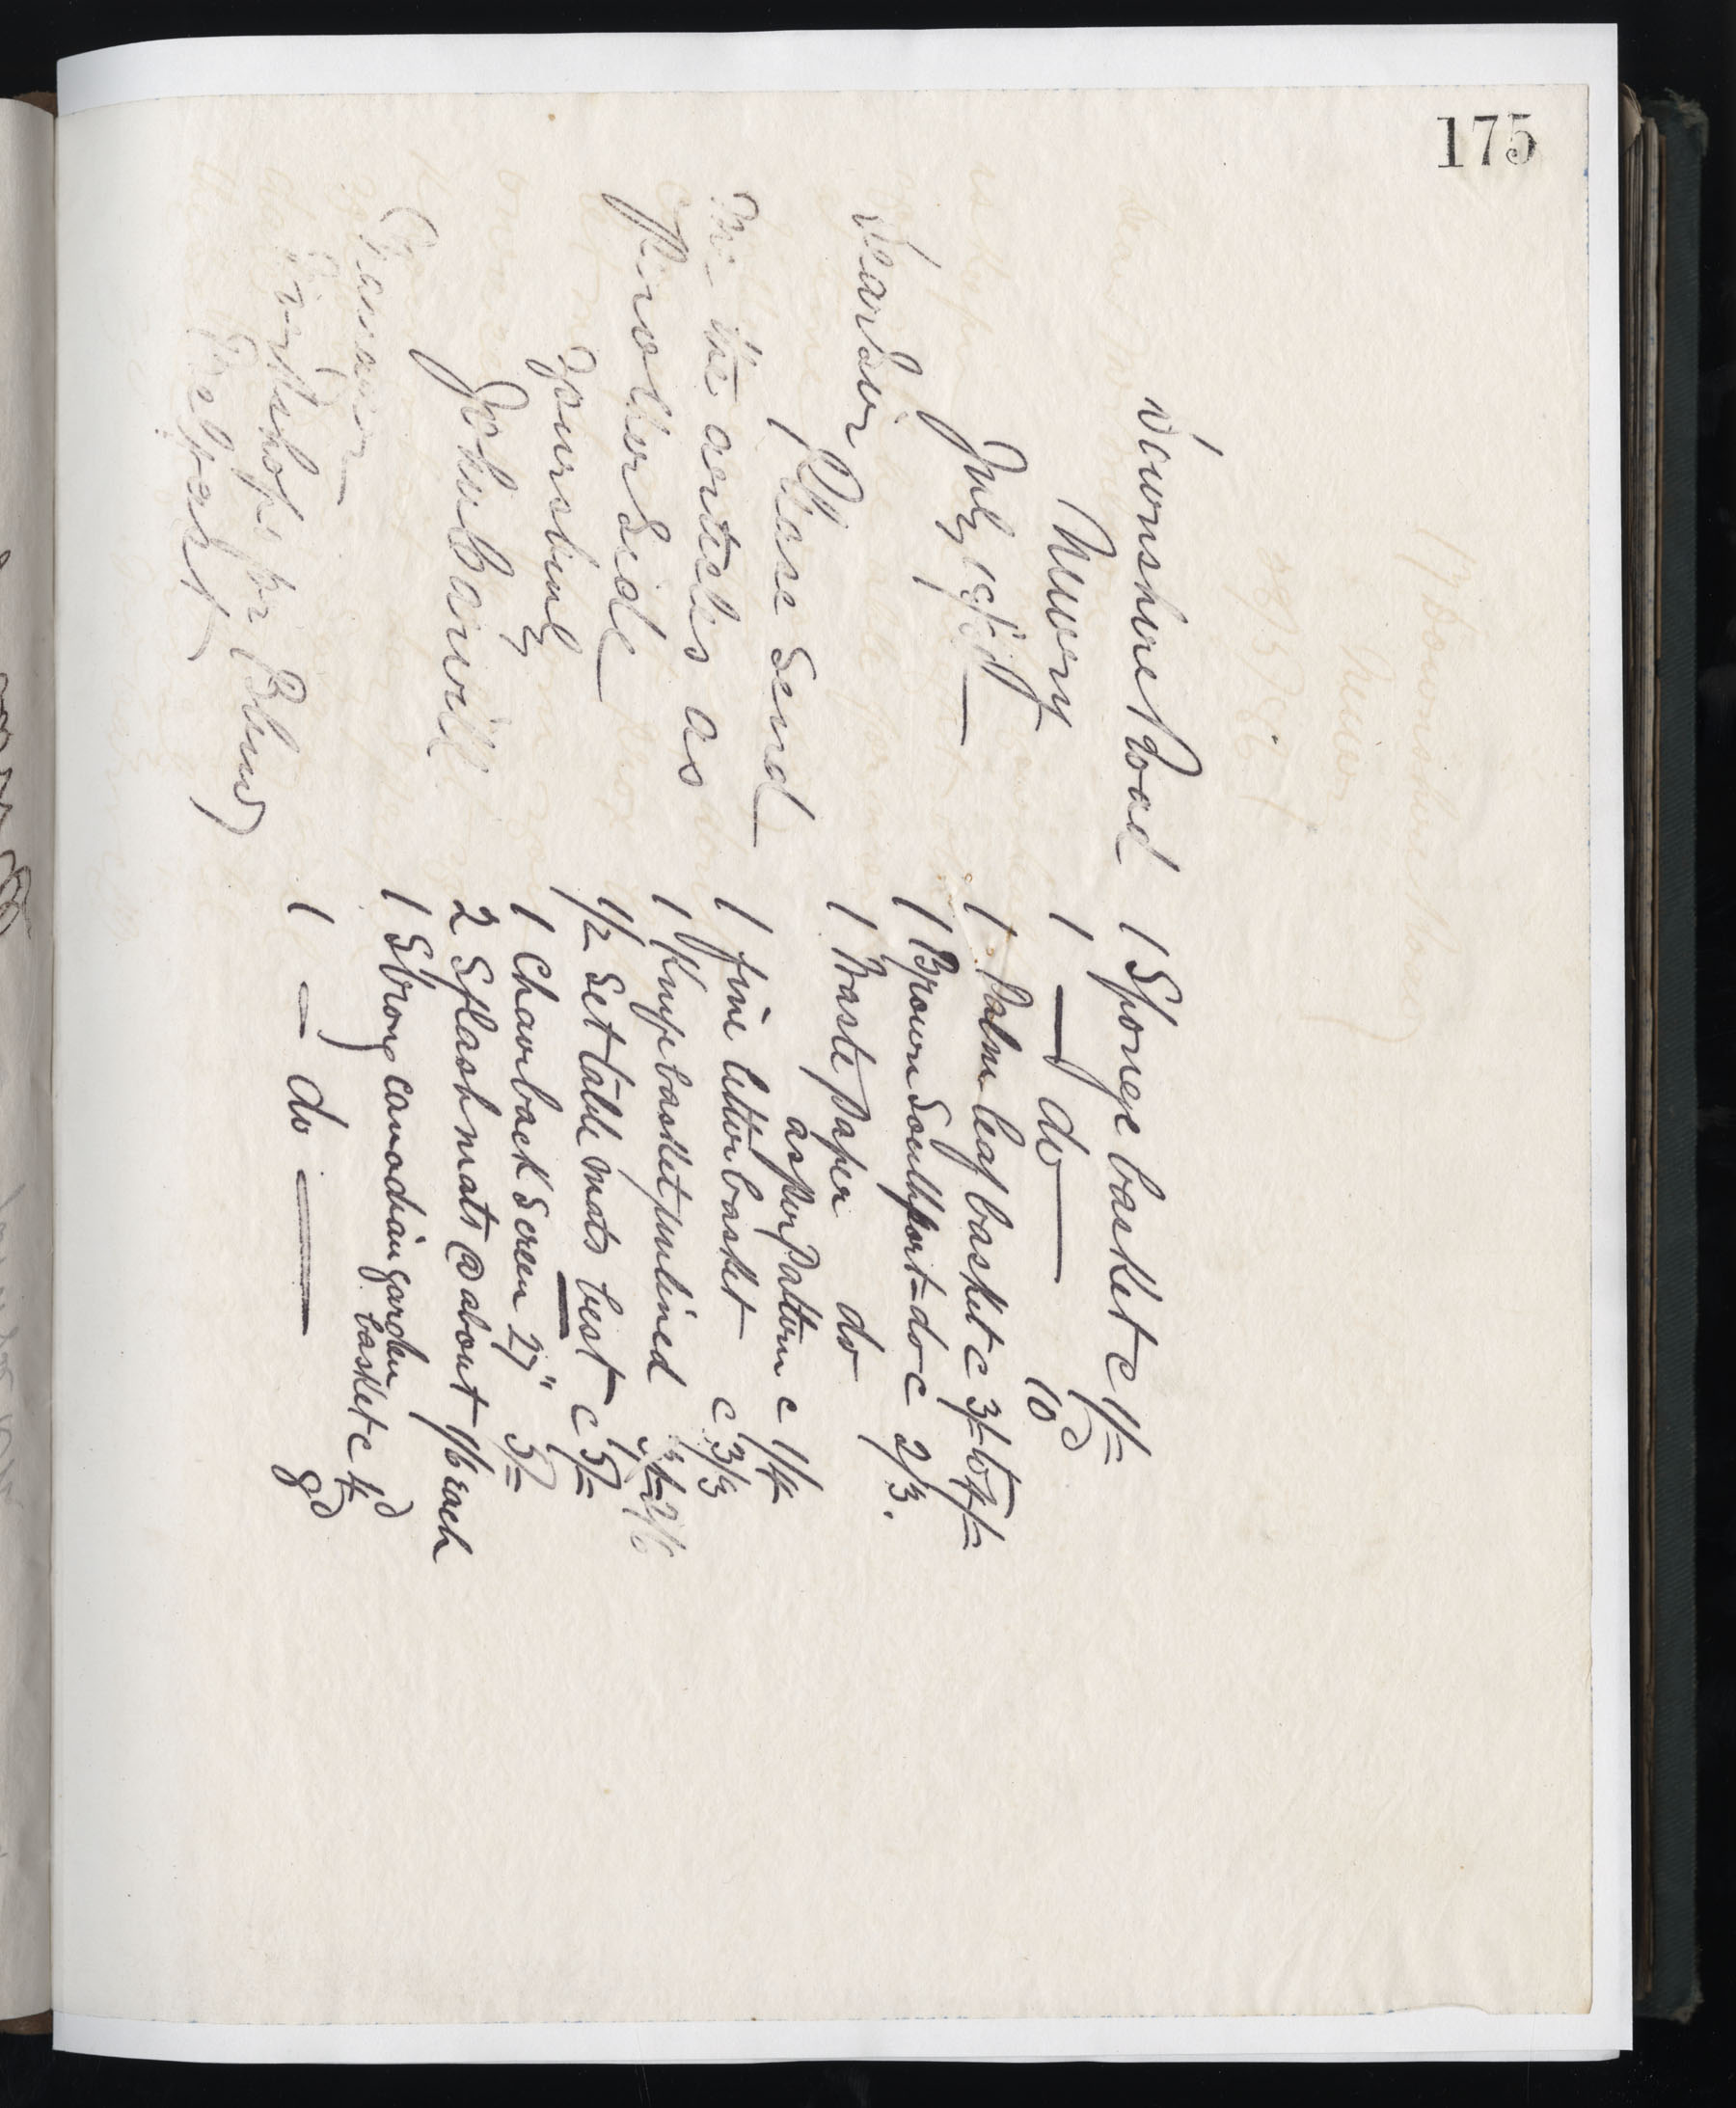 175
Downshire Road
Newry
July 19th
Dear Sir
Please Send
me the articles as
per other Side
Yours truly
John Barwill
Manager
Workshops for Blind
Belfast
1 Sponge basket c 1/=
1 — do — 10d
1 Palm leaf basket c 3/= to 4/=
1 Brown Southport = do c 2/3.
1 Waste Paper do
as per Pattern c 1/4
1 fine letter basket c 3/3
1 Knife basket, unlined 2/6
1/2 Set table mats best c 5/=
1 Chair back Screen 27" 5/=
2 Splash mats @ about 1/6 each
1 Strong canadian garden
basket c 1d
1 — do — 8d